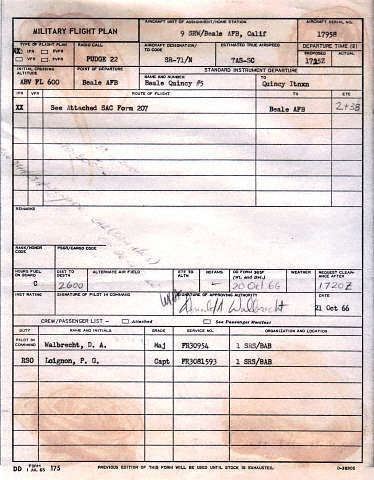 MILITARY FLIGHT PLAN
AIRCRAFT UNIT OF ASSIGNMENT/HOME STATION
9 SRW/Beale AFB, Calif
AIRCRAFT SERIAL NO.
17958
TYPE OF FLIGHT PLAN
XX IFR FVFR
VFR DVFR
RADIO CALL
PUDGE 22
AIRCRAFT DESIGNATION/
TD CODE
SR-71/N
ESTIMATED TRUE AIRSPEED
TAS-SC
DEPARTURE TIME (Z)
PROPOSED ACTUAL
INITIAL CRUISING
ALTITUDE
ABV FL 600
POINT OF DEPARTURE
Beale AFB
STANDARD INSTRUMENT DEPARTURE
NAME AND NUMBER
Beale Quincy #5
TO
Quincy Itnxn
IFR VFR
ROUTE OF FLIGHT
TO
ETE
XX
See Attached SAC Form 207
Beale AFB
2+38
REMARKS
RANK/HONOR
CODE
PSGR/CARGO CODE
HOURS FUEL
ON BOARD
C
DIST TO
DESTN
2600
ALTERNATE AIR FIELD
ETE TO
ALTN
NOTAMS
DD FORM 365F
(Wt. and Dhr.)
20 Oct 66
WEATHER
REQUEST CLEAR-
ANCE AFTER
1720Z
INST RATING
SIGNATURE OF PILOT IN COMMAND
SIGNATURE OF APPROVING AUTHORITY
Donald A Walbrecht
DATE
21 Oct 66
CREW/PASSENGER LIST - Attached See Passenger Manifest
DUTY
NAME AND INITIALS
GRADE
SERVICE NO.
ORGANIZATION AND LOCATION
PILOT IN
COMMAND
Walbrecht, D. A.
Maj
FR30954
1 SRS/BAB
RSO
Loignon, P. G.
Capt
FR3081593
1 SRS/BAB
DD FORM 1 JUL 65 175
PREVIOUS EDITION OF THIS FORM WILL BE USED UNTIL STOCK IS EXHAUSTED.